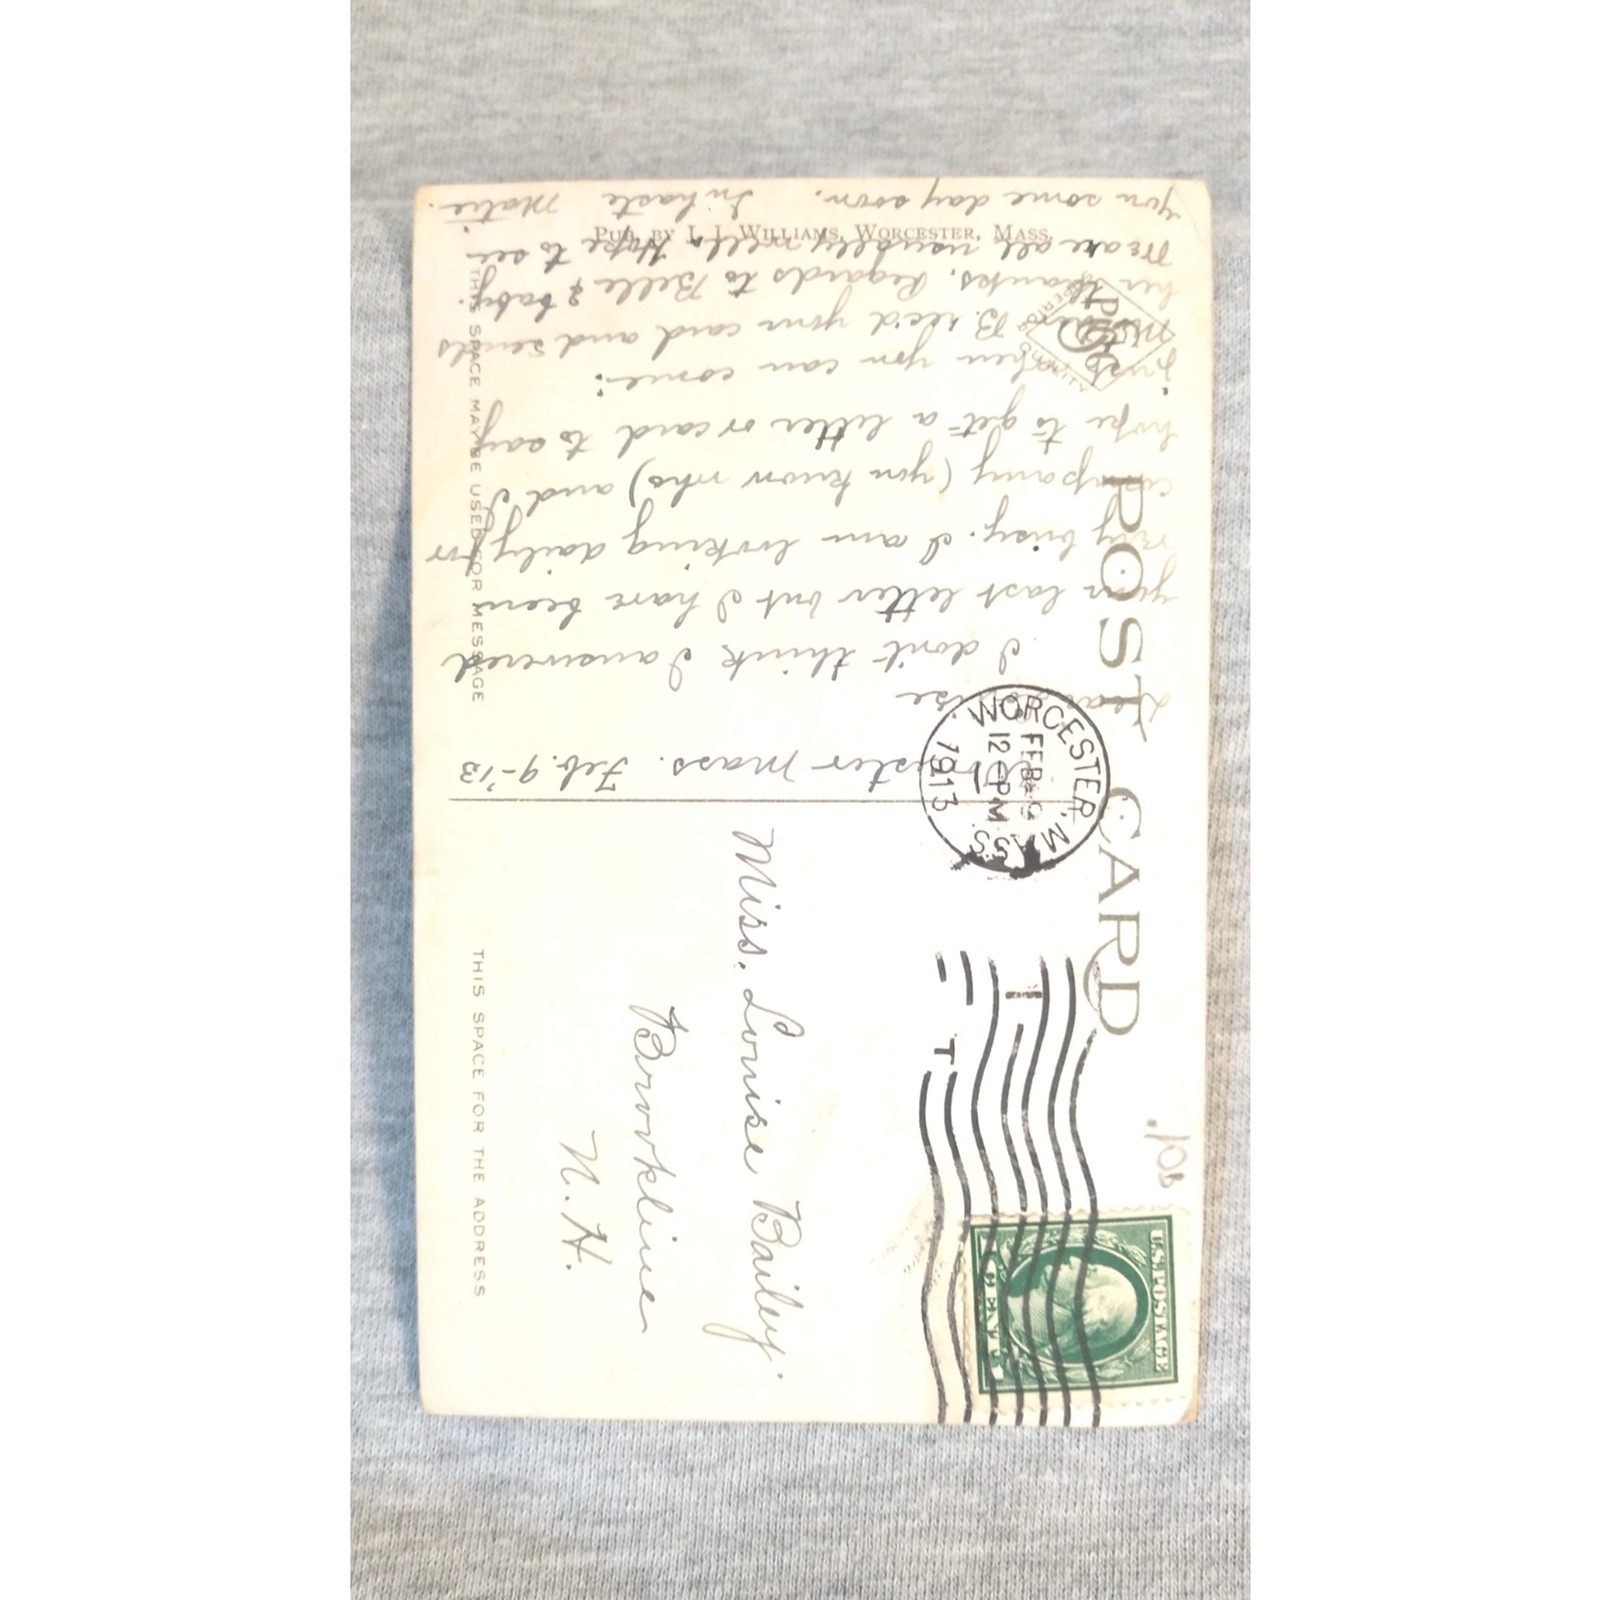 POST CARD
THIS SPACE MAY BE USED FOR MESSAGE
THIS SPACE FOR THE ADDRESS
PUB. BY J. I. WILLIAMS, WORCESTER, MASS.
WORCESTER, MASS.
FEB 9
12-PM
1913
U.S. POSTAGE
10¢.
Worcester Mass. Feb. 9-'13
Dear Louise
I don't think I answered
your last letter but I have been
very busy. I am looking daily for
company (you know who) and I
hope to get a letter or card to say
just when you can come.
B. rec'd your card and sends
her thanks. Regards to Belle & baby.
We are all usually well. Hope to see
you some day soon. In haste Matie.
Miss. Louise Bailey.
Brookline
N. H.